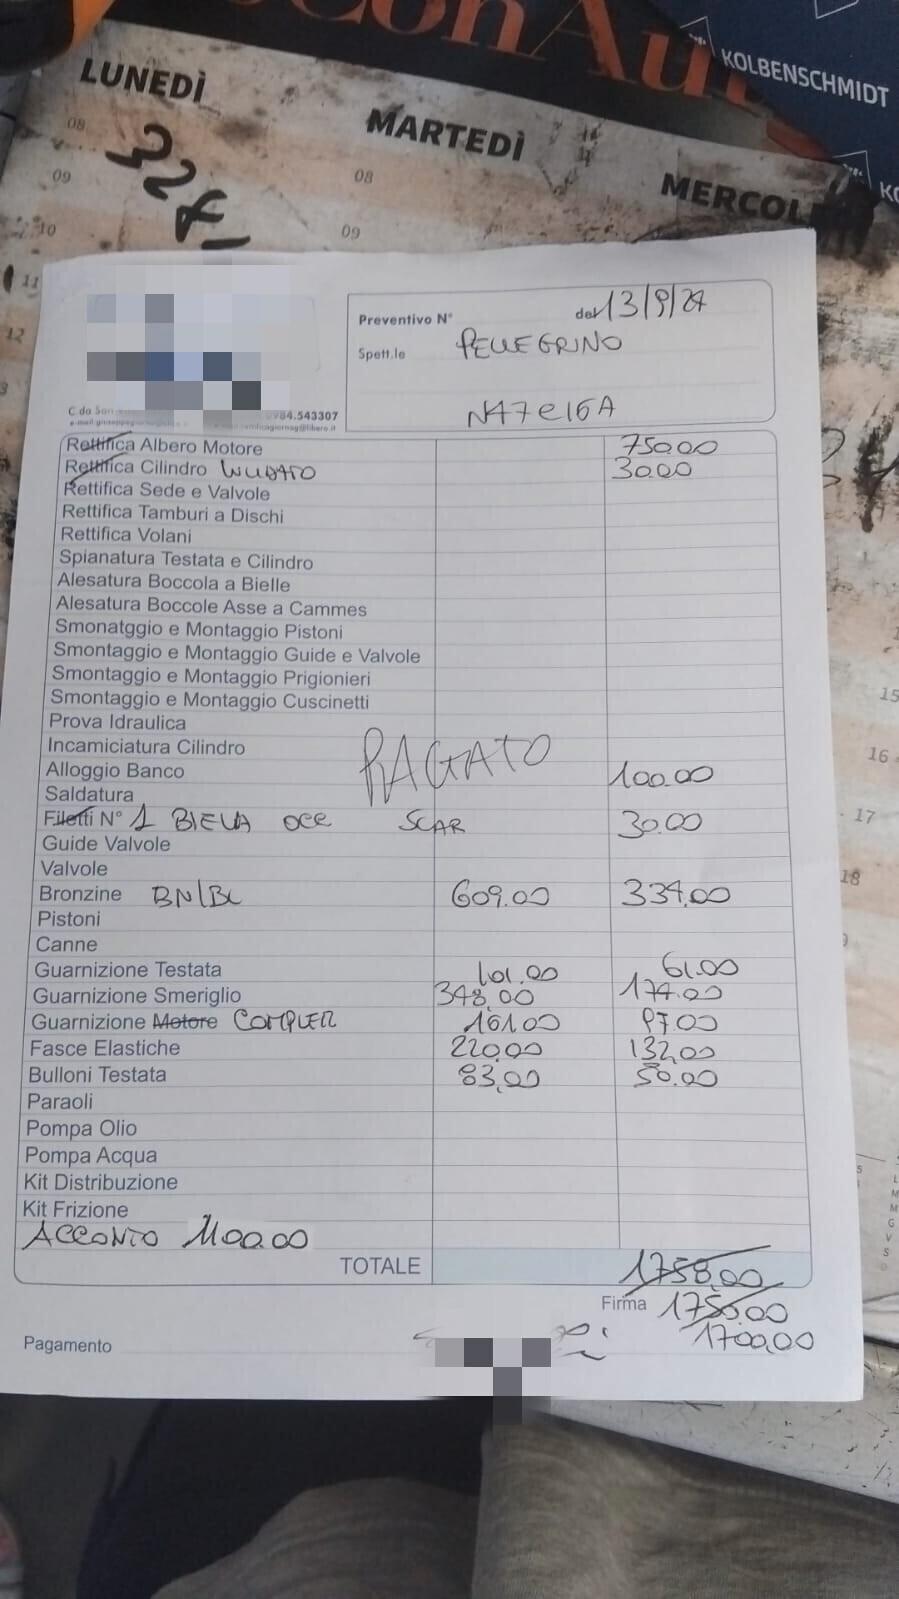 ConAu
KOLBENSCHMIDT
LUNEDÌ
MARTEDÌ
MERCOL
08
09
10
11
12
08
09
Preventivo N° del 13/9/24
Spett.le PELLEGRINO
N47C16A
C.da San
0984.543307
Rettifica Albero Motore 750.00
Rettifica Cilindro LUCIDATO 30.00
Rettifica Sede e Valvole
Rettifica Tamburi a Dischi
Rettifica Volani
Spianatura Testata e Cilindro
Alesatura Boccola a Bielle
Alesatura Boccole Asse a Cammes
Smonatggio e Montaggio Pistoni
Smontaggio e Montaggio Guide e Valvole
Smontaggio e Montaggio Prigionieri
Smontaggio e Montaggio Cuscinetti
Prova Idraulica
Incamiciatura Cilindro
PAGATO
Alloggio Banco 100.00
Saldatura
Filetti N° 1 BIELLA OCC SCAR 30.00
Guide Valvole
Valvole
Bronzine BN/BL 609.00 334,00
Pistoni
Canne
Guarnizione Testata 101.00 61.00
Guarnizione Smeriglio 348,00 174.00
Guarnizione Motore COMPLET 161.00 97.00
Fasce Elastiche 220,00 132,00
Bulloni Testata 83,00 50.00
Paraoli
Pompa Olio
Pompa Acqua
Kit Distribuzione
Kit Frizione
ACCONTO 1100.00
TOTALE 1758,00
Firma 1750.00
1700,00
Pagamento
15
16
17
18